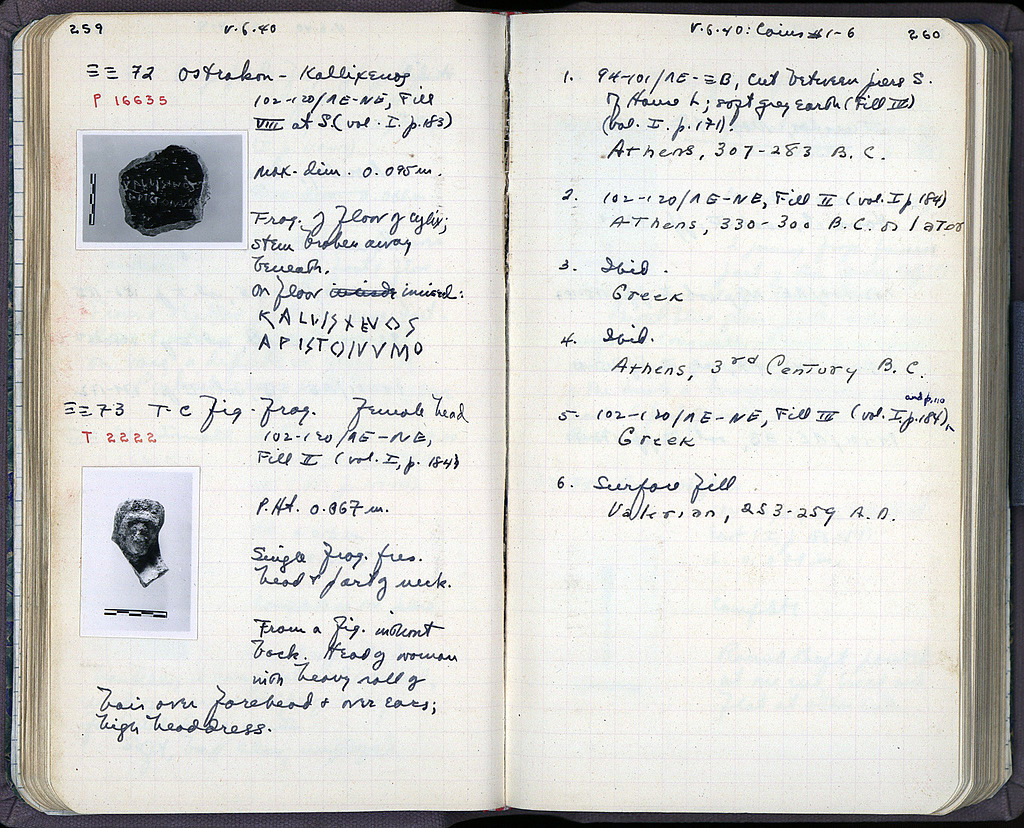 259
V.6.40
ΞΞ 72 Ostrakon - Kallixenos
P 16635
102-120/ΛΕ-ΝΕ, Fill
VIII at S. (vol. I. p. 183)
Max. dim. 0.095 m.
Frag. of floor of cylix;
stem broken away
beneath.
On floor incised:
KALVISXENOS
APISTONVMO
ΞΞ 73 T C Fig. Frag. Female head
T 2222
102-120/ΛΕ-ΝΕ,
Fill II (vol. I, p. 184)
P. Ht. 0.067 m.
Single frag. pres.
head & part of neck.
From a fig. without
back. Head of woman
with heavy roll of
hair over forehead & over ears;
high headdress.
V.6.40: Coins #1-6
260
1. 94-101/ΛΕ-ΞΒ, cut between piers S.
of House L; soft grey earth (Fill III)
(vol. I. p. 171).
Athens, 307-283 B.C.
2. 102-120/ΛΕ-ΝΕ, Fill II (vol. I, p 184)
Athens, 330-300 B.C. or later
3. Ibid.
Greek
4. Ibid.
Athens, 3rd Century B.C.
and p. 110
5. 102-120/ΛΕ-ΝΕ, Fill III (vol. I, p. 184),
Greek
6. Surface fill
Valerian, 253-259 A.D.